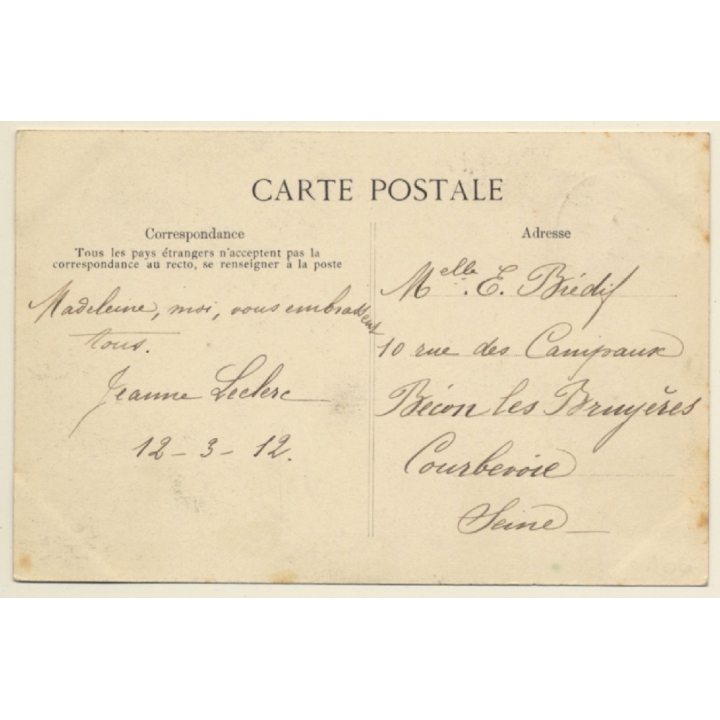 CARTE POSTALE
Correspondance
Tous les pays étrangers n'acceptent pas la
correspondance au recto, se renseigner à la poste
Madeleine, moi, vous embrassent
tous.
Jeanne Leclerc
12-3-12.
Adresse
Melle. E. Brédif
10 rue des Campaux
Bécon les Bruyères
Courbevoie
Seine